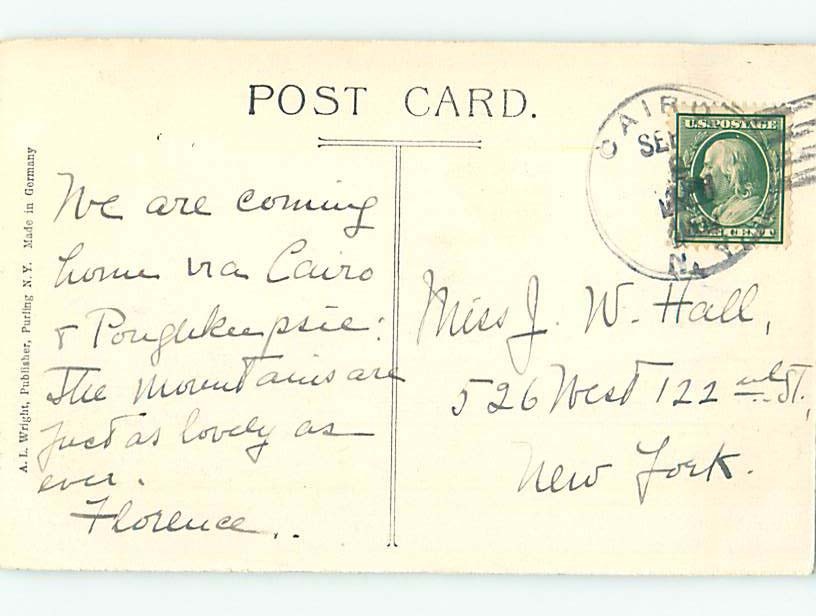 POST CARD.
A. L. Wright, Publisher, Purling N. Y. Made in Germany
We are coming
home via Cairo
& Poughkeepsie:
The Mountains are
just as lovely as
ever.
Florence..
CAIRO
SEP
N.Y.
U.S. POSTAGE
Miss J. W. Hall,
526 West 122 nd St.,
New York.